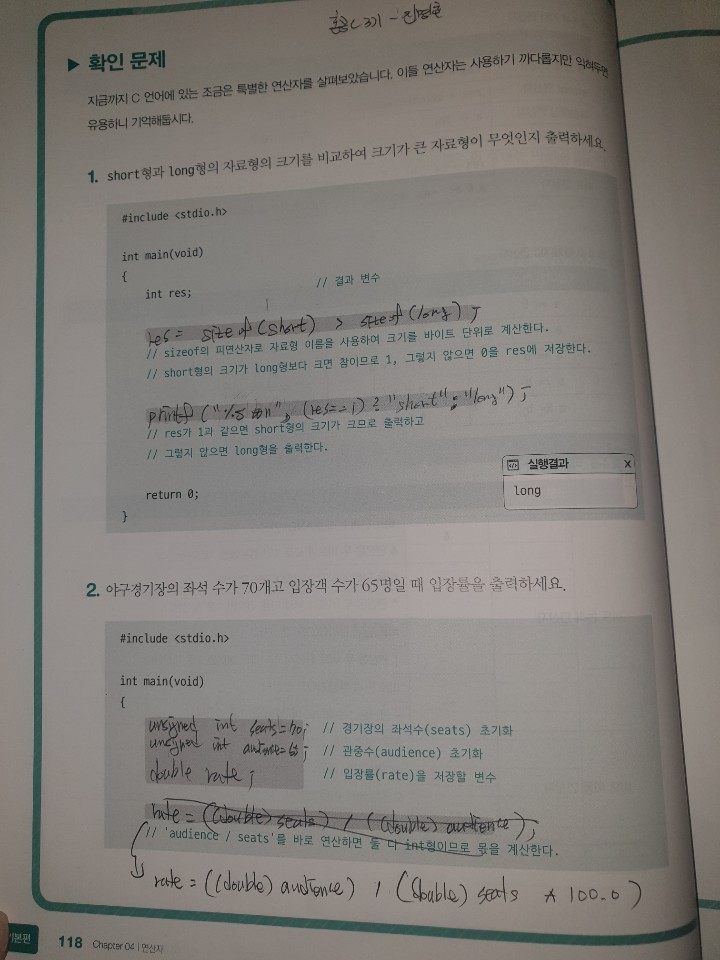 혼공C 3기 -
▶ 확인 문제
지금까지 C 언어에 있는 조금은 특별한 연산자를 살펴보았습니다. 이들 연산자는 사용하기 까다롭지만 익혀두면
유용하니 기억해둡시다.
1. short형과 long형의 자료형의 크기를 비교하여 크기가 큰 자료형이 무엇인지 출력하세요.
#include <stdio.h>
int main(void)
{
int res; // 결과 변수
res = sizeof(short) > sizeof(long);
// sizeof의 피연산자로 자료형 이름을 사용하여 크기를 바이트 단위로 계산한다.
// short형의 크기가 long형보다 크면 참이므로 1, 그렇지 않으면 0을 res에 저장한다.
printf("%s\n", (res==1) ? "short" : "long");
// res가 1과 같으면 short형의 크기가 크므로 출력하고
// 그렇지 않으면 long형을 출력한다.
실행결과 X
return 0;
long
}
2. 야구경기장의 좌석 수가 70개고 입장객 수가 65명일 때 입장률을 출력하세요.
#include <stdio.h>
int main(void)
{
unsigned int seats=70; // 경기장의 좌석수(seats) 초기화
unsigned int // 관중수(audience) 초기화
double rate; // 입장률(rate)을 저장할 변수
rate = ((double) seats) / ((double) audience);
// 'audience / seats'를 바로 연산하면 둘 다 int형이므로 몫을 계산한다.
rate = ((double) audience) / ((double) seats * 100.0)
기본편 118 Chapter 04 | 연산자